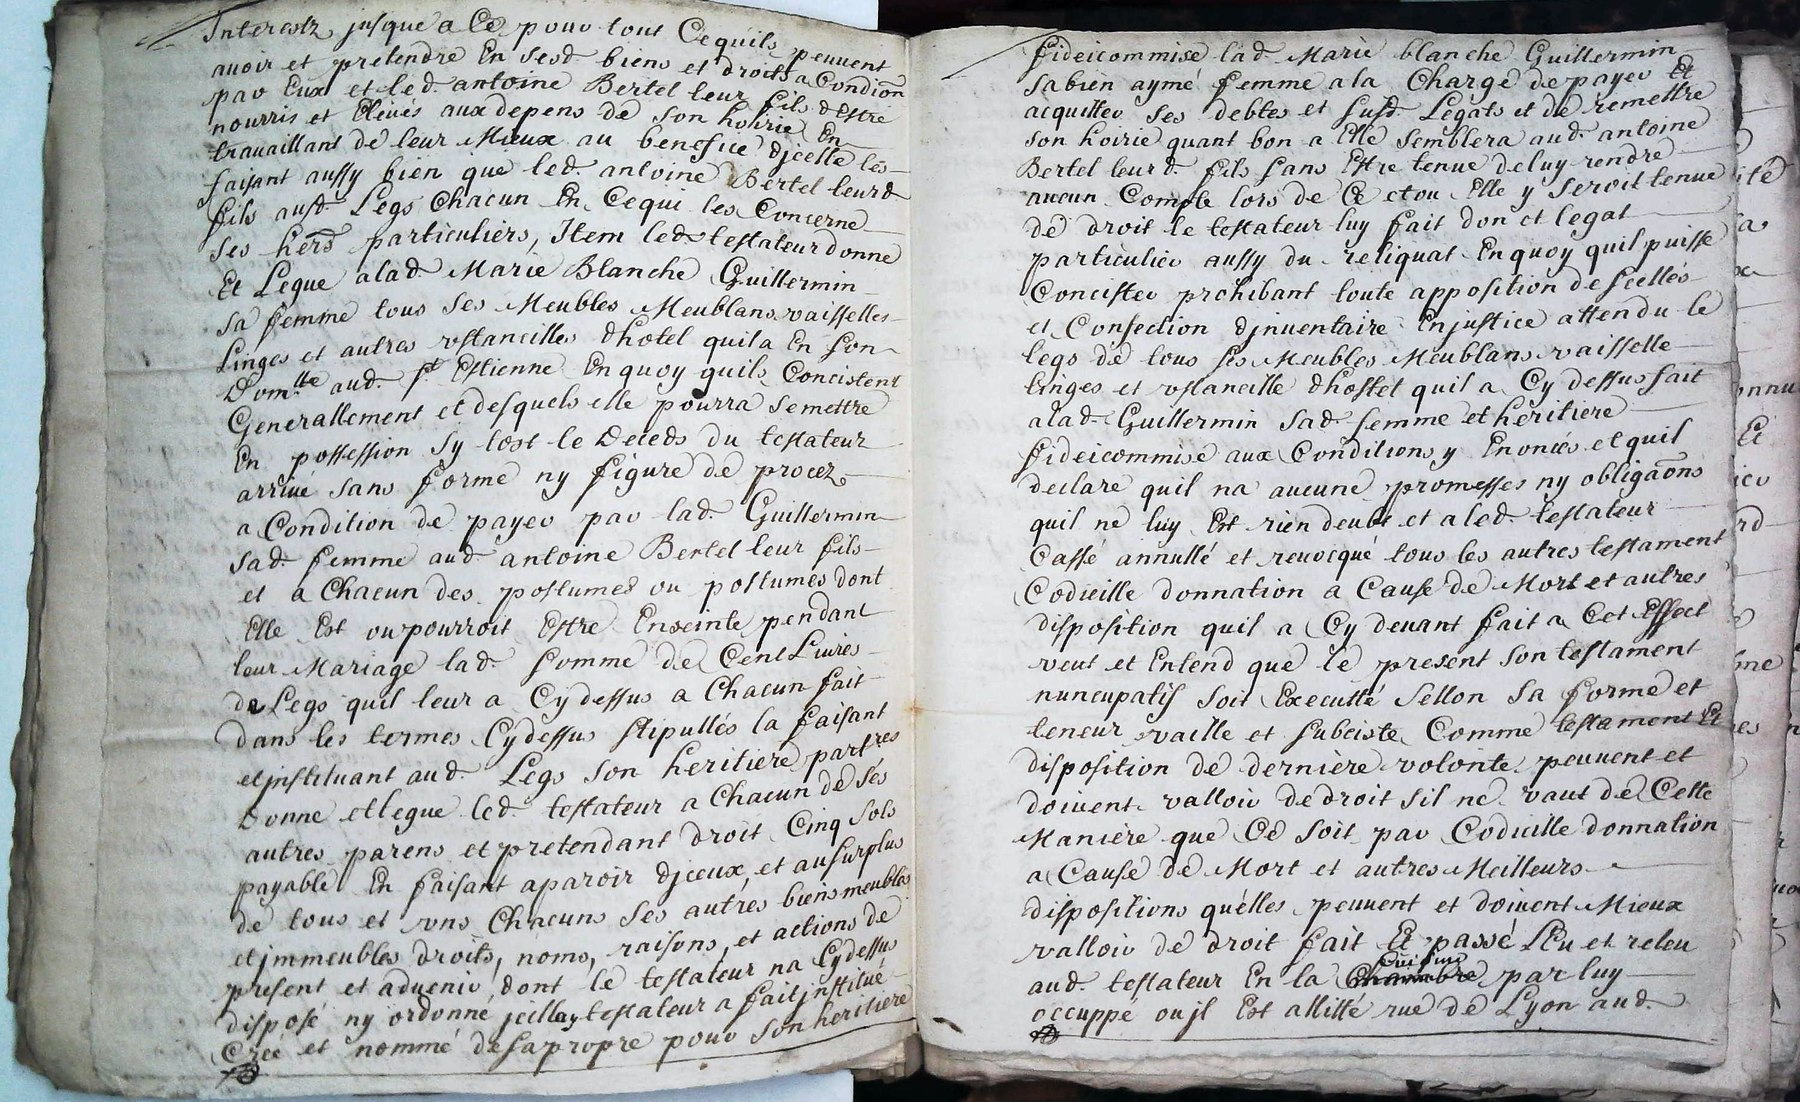 Interestz jusque a Ce pour tout Cequils peuvent
avoir et pretendre En sesd. biens et droits a Condiōn
par Eux et led. antoine Bertel leur fils d'Estre
nourris et Elevés aux depens de son hoirie En
travaillant de leur Mieux au benefice djcelle les
faisant aussy bien que led. antoine Bertel leurd.
fils ausd. Legs Chacun En Cequi les Concerne
ses hers particuliers, Item led. testateur donne
Et Legue alad. Marie Blanche Guillermin
sa femme tous ses Meubles Meublans vaisselles
Linges et autres vstancilles dhotel quila En son
Domlle aud. St. Estienne En quoy quils Concistent
Generallement et desquels elle pourra semettre
En possession sy tost le Deceds du testateur
arrivé sans forme ny figure de procez
a Condition de payer par lad. Guillermin
sad. femme aud. antoine Bertel leur fils
et a Chacun des postumes ou postumes dont
Elle Est ou pourroit Estre Enceinte pendant
leur Mariage lad. somme de Cent Livres
de Legs quil leur a Cydessus a Chacun fait
dans les termes Cydessus stipullés la faisant
etjnstituant aud. Legs son heritiere partres
Donne etlegue led. testateur a Chacun de ses
autres parens et pretendant droit Cinq sols
payable En faisant aparoir djceux, et ausurplus
de tous et vns Chacuns ses autres biens meubles
etjmmeubles droits, noms, raisons, et actions de
present et advenir, dont le testateur na Cydessus
disposé ny ordonné jcelluy testateur a fait jnstitué
Créé et nommé desapropre pour son heritiere
fideicommise lad. Marie blanche Guillermin
sabien aymé femme ala Charge de payer Et
acquitter ses debtes et susd. Legats et de remettre
son hoirie quant bon a Elle semblera aud. antoine
Bertel leurd. fils sans Estre tenue deluy rendre
aucun Compte lors de Ce et ou Elle y seroit tenue
de droit le testateur luy fait don et legat
particulier aussy du reliquat En quoy quil puisse
Concister prohibant toute apposition de scellés
et Confection djnventaire Enjustice attendu le
legs de tous ses Meubles Meublans vaisselle
linges et vstancille dhostel quil a Cy dessus fait
alad. Guillermin sad. femme et heritiere
fideicommise aux Conditions y Enoncés et quil
declare quil na aucune promesses ny obligaōns
quil ne luy Est rien deubt et a led. testateur
Cassé annullé et revocqué tous les autres testament
Codicille donnation a Cause de Mort et autres
disposition quil a Cy devant fait a Cet Effect
veut et Entend que le present son testament
nuncupatif soit Executté sellon sa forme et
teneur vaille et subciste Comme testament Et
disposition de derniere volonte peuvent et
doivent valloir de droit sil ne vaut de Cette
Maniere que Ce soit par Codicille donnation
a Cause de Mort et autres Meilleurs
dispositions qu'elles peuvent et doivent Mieux
valloir de droit fait Et passé Leu et releu
Cuisine
aud. testateur En la Chambre par luy
occuppé oujl Est allitté rue de Lyon aud.